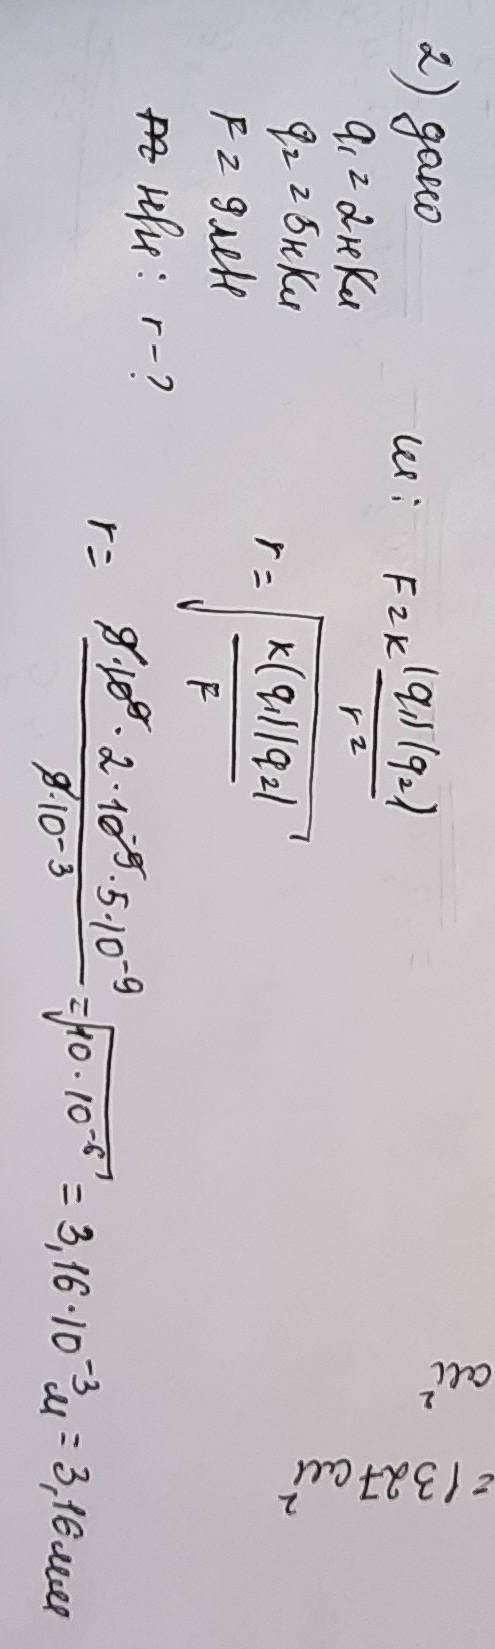 2) дано
q₁ = 2нКл
q₂ = 5нКл
F = 9 мН
r - ?
F = k |q₁||q₂| / r²
r = √(k|q₁||q₂| / F)
r = 9·10⁹ · 2·10⁻⁹ · 5·10⁻⁹ / 9·10⁻³ = √(10·10⁻⁶) = 3,16·10⁻³ м = 3,16мм
см²
=1327см²